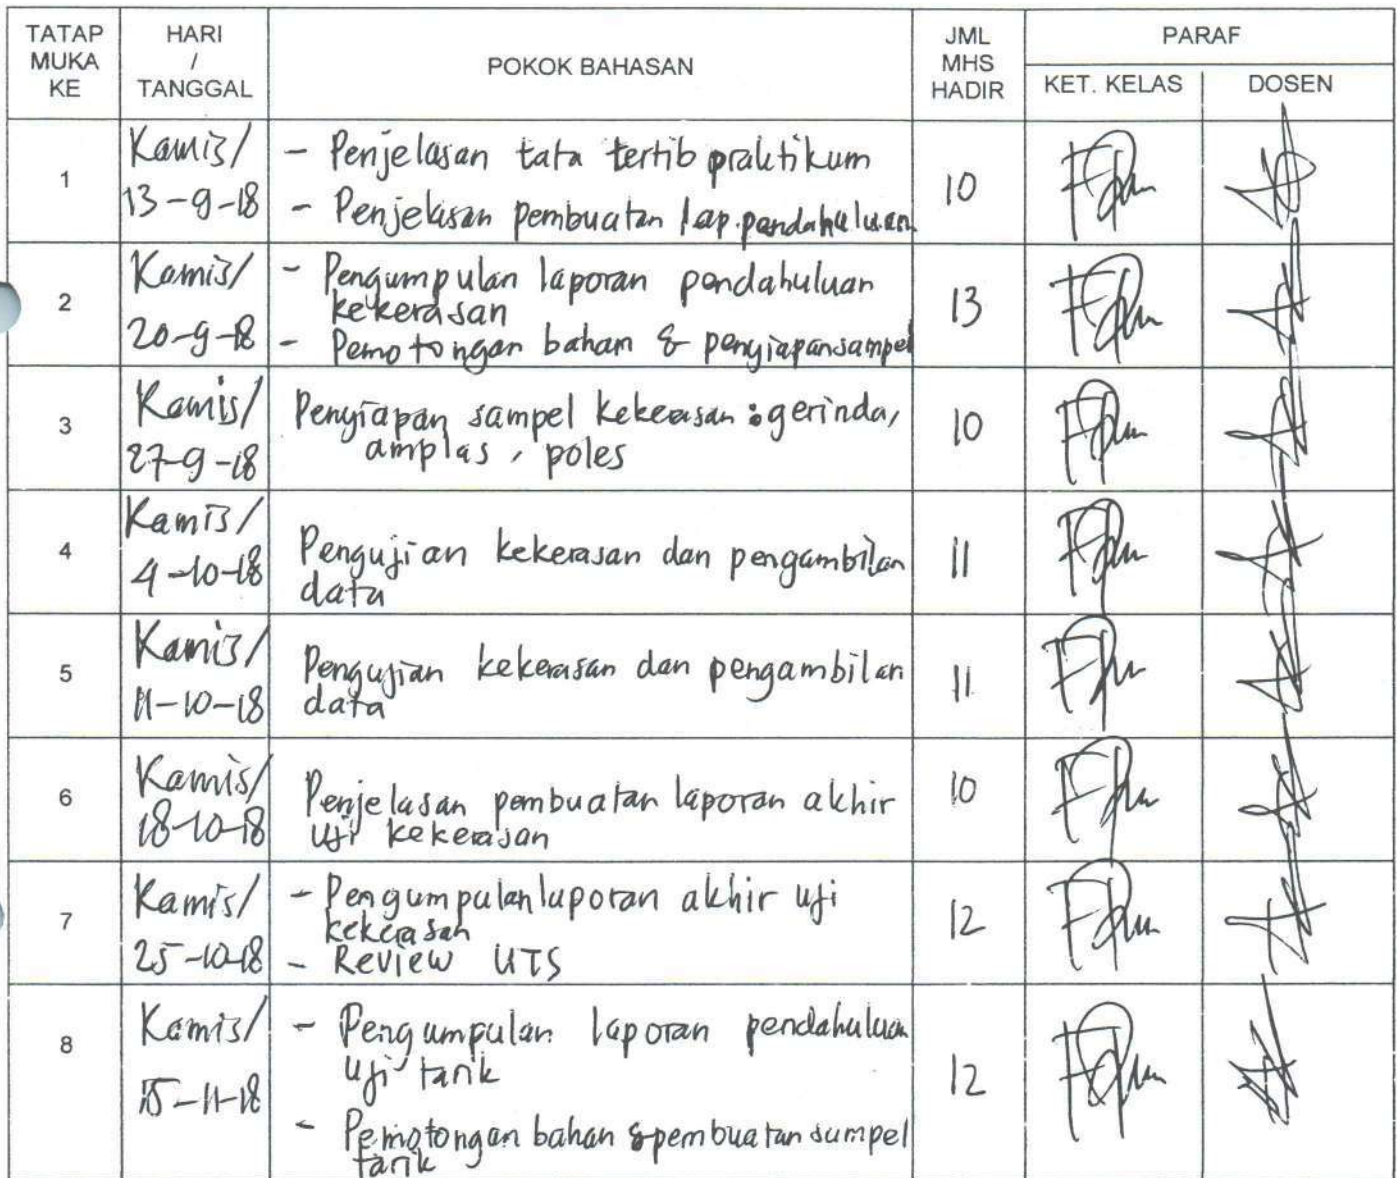 TATAP MUKA KE
HARI / TANGGAL
POKOK BAHASAN
JML MHS HADIR
PARAF
KET. KELAS
DOSEN
1
Kamis/
13-9-18
- Penjelasan tata tertib praktikum
- Penjelasan pembuatan lap.pendahuluan
10
2
Kamis/
20-9-18
- Pengumpulan laporan pendahuluan
kekerasan
- Pemotongan bahan & penyiapan sampel
13
3
Kamis/
27-9-18
Penyiapan sampel kekerasan : gerinda,
amplas, poles
10
4
Kamis/
4-10-18
Pengujian kekerasan dan pengambilan
data
11
5
Kamis/
11-10-18
Pengujian kekerasan dan pengambilan
data
11
6
Kamis/
18-10-18
Penjelasan pembuatan laporan akhir
uji kekerasan
10
7
Kamis/
25-10-18
- Pengumpulan laporan akhir uji
kekerasan
- Review UTS
12
8
Kamis/
15-11-18
- Pengumpulan laporan pendahuluan
uji tarik
- Pemotongan bahan & pembuatan sampel
tarik
12